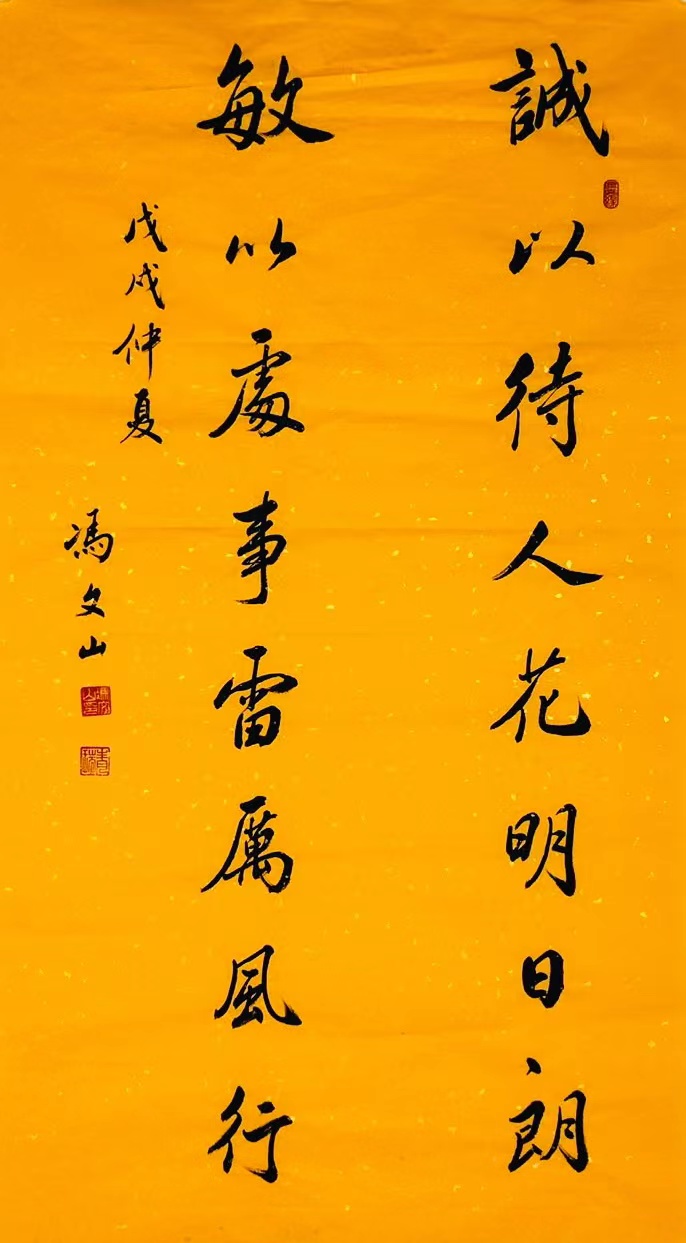 誠以待人花明日朗
敏以處事雷厲風行
戊戌仲夏
馮文山